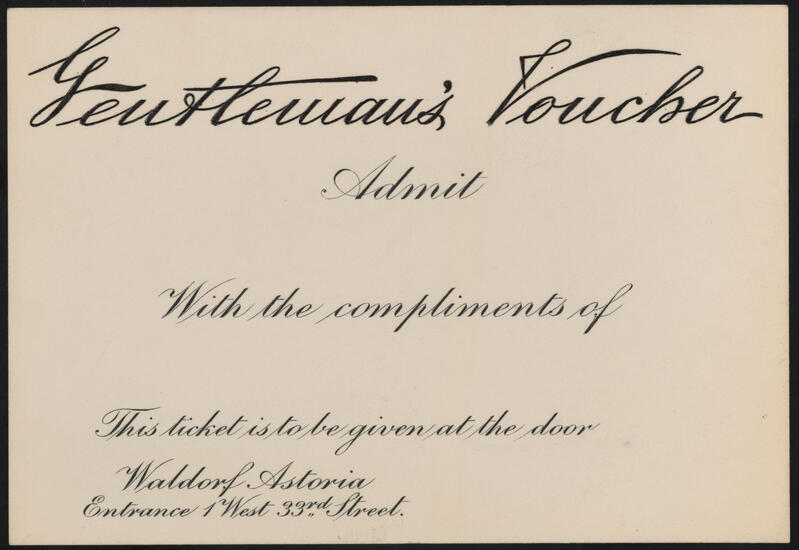 Gentleman's Voucher
Admit
With the compliments of
This ticket is to be given at the door
Waldorf Astoria
Entrance 1 West 33rd Street.